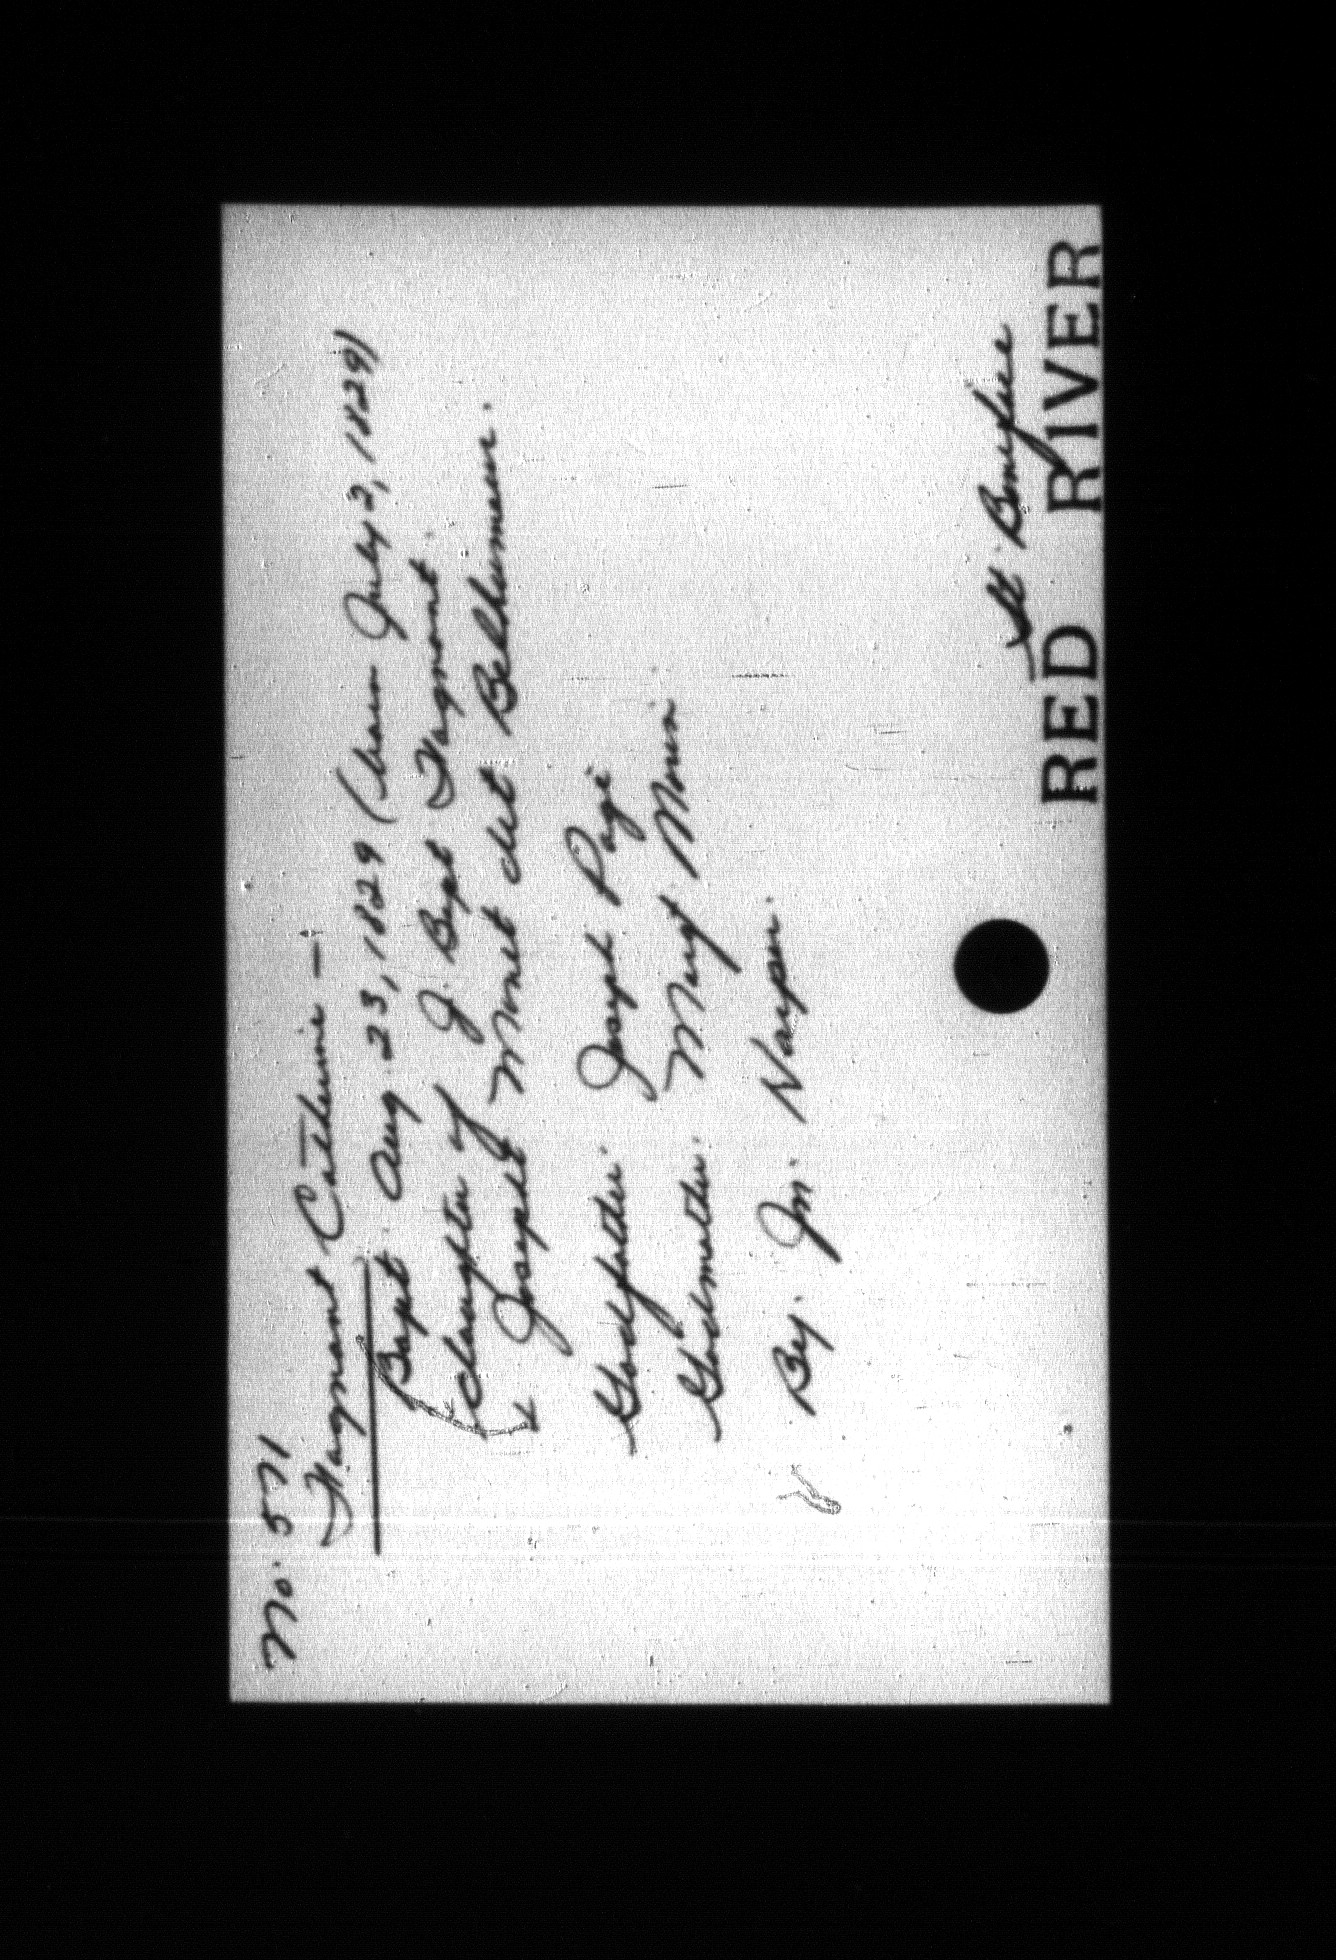 No. 571
Fagnant Catherine —
Bapt. Aug. 23, 1829 (born July 2, 1829)
daughter of J. Bapt Fagnant.
& Josephte Monet dit Belhumeur.
Godfather. Joseph Pagé
Godmother. Margt Morin
By. Jn. Harper.
St. Boniface
RED RIVER